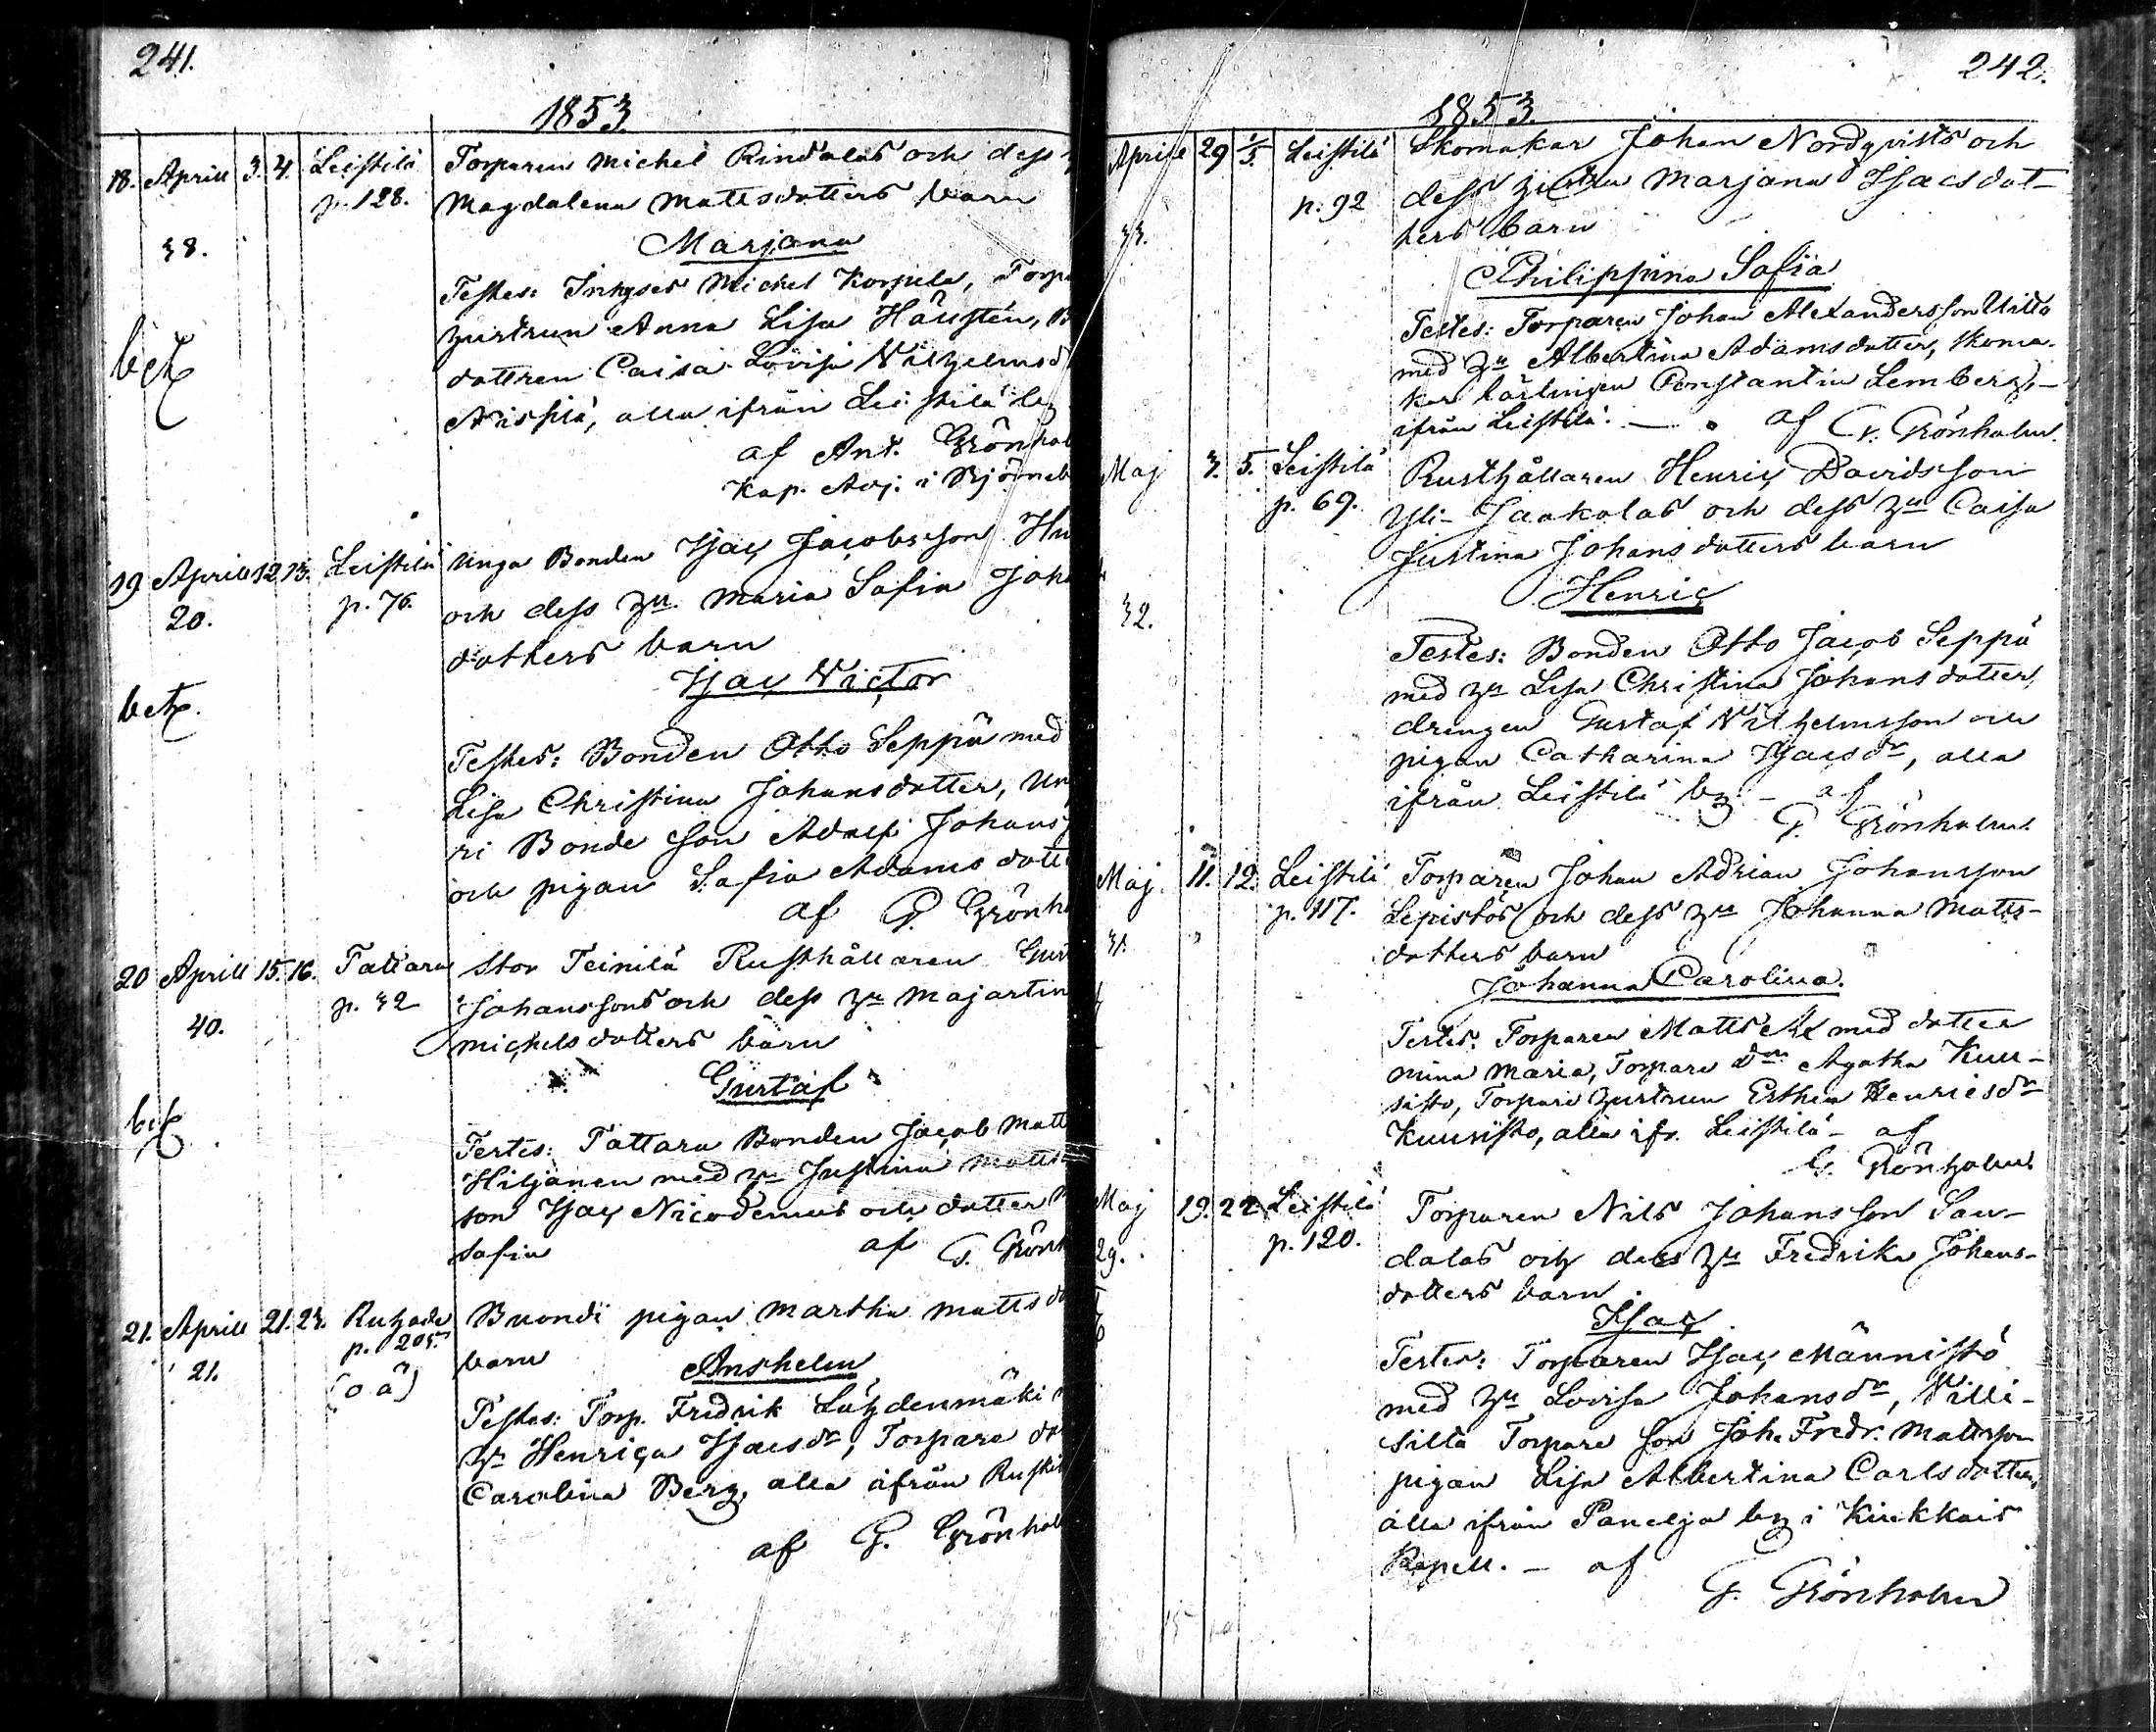 241.
1853.
18. Aprill 3. 4. Leistilä Torparen Michel Rindalas och dess
p. 128. Magdalena Mattsdotters barn
38.
Marjana
Testes: Inhyses Michel Korpela, Torp
hustrun Anna Lisa Hausten, B
bet
dottren Caisa Lovisa Wilhelmsd
Nissilä, alla ifrån Leistilä by
af Ant. Grönhol
Kap. Adj. i Björneb
19 Aprill 12 13. Leistilä Unga Bonden Isac Jacobsson Hu
p. 76. och dess hu Maria Sofia Joha
20.
dotters barn
Isac Victor
bet.
Testes: Bonden Otto Seppä med
Lisa Christina Johansdotter, Un
ri Bonde Son Adolf Johans
och pigan Safia Adams dott
af G. Grönh
20 Aprill 15. 16. Tattara Stor Teinilä Rusthållaren Gus
p. 32 Johanssons och dess hu Majastin
40.
Michelsdotters barn
Gustaf
bet.
Testes: Tattara Bonden Jacob Matt
Hiljanen med hu Justina Matts
son Isac Nicodemus och dotter
Sofia af G. Grönh
21. Aprill 21. 23. Ruhade Buondi pigan Martha Matts do
p. 205. barn
21. (o ä)
Anshelm
Testes: Torp. Fredrik Lähdenmäki
hu Henrica Isacsdr, Torpare do
Carolina Berg, alla ifrån Ruski
af G. Grönhol
242.
1853.
Aprill 29 1/5. Leistilä Skomakar Johan Nordqvists och
p. 92 dess hustru Marjana Isacsdot-
33.
ters barn
Philippina Sofia
Testes: Torparen Johan Alexandersson Uitto
med hu Albertina Adamsdotter, Skoma-
kar lärlingen Constantin Lemberg,-
ifrån Leistilä. — af G. Grönholm.
Maj 3. 5. Leistilä Rusthållaren Henric Davidsson
p. 69. Yli-Jaakolas och dess hu Caisa
Justina Johansdotters barn
Henric
32.
Testes: Bonden Otto Jacob Seppä
med hu Lisa Christina Johansdotter,
drengen Gustaf Wilhelmsson och
pigan Catharina Isacsdr, alla
ifrån Leistilä by - af
G. Grönholm.
Maj 11. 12. Leistilä Torparen Johan Adrian Johansson
p. 117. Lepistös och dess hu Johanna Matts-
31.
dotters barn
Johanna Carolina.
Testes: Torparen Matts med dotter
Mina Maria, Torpare dn Agatha Kuu-
sisto, Torpare hustrun Esther Henricsdr
Kuusisto, alla ifr. Leistilä - af
G. Grönholm
Maj 19. 22. Leistilä Torparen Nils Johansson San-
p. 120. dalas och dess hu Fredrika Johans-
29.
dotters barn
Isac
Testes: Torparen Isac Männistö
med hu Lovisa Johansdr, Willi-
silta Torpare Son Joh. Fredr. Mattsson
pigan Lisa Albertina Carlsdotter,
alla ifrån Panelja by i Kiukkais
Kapell. - af
G. Grönholm